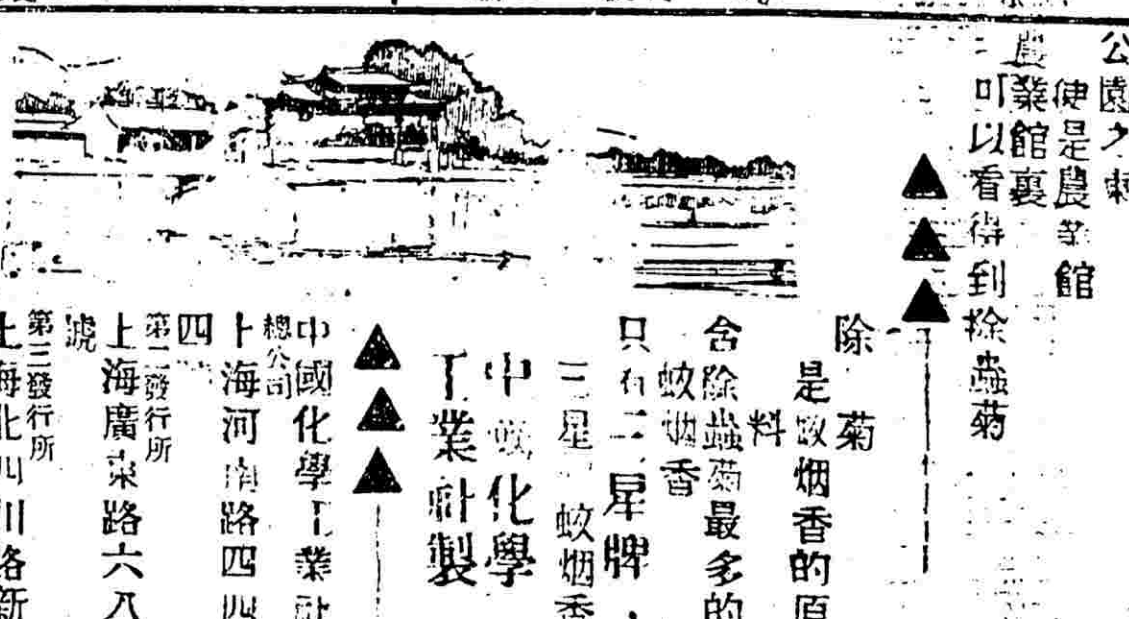 公園之
便是農業館
農業館裏
可以看得到除蟲菊
除菊
是蚊烟香的原
料
含除蟲菊最多的
蚊烟香
只有三星牌，
三星 蚊烟香
中國化學
工業社製
中國化學工業社
總公司
上海河南路四四
四
第二發行所
上海廣東路六八
號
第三發行所
上海北四川路新